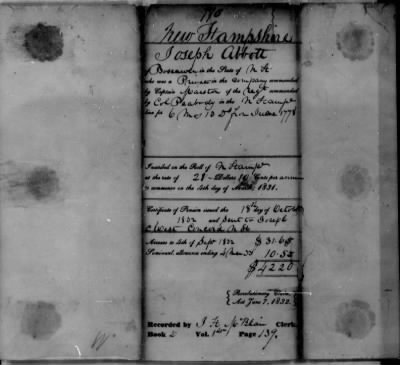 New Hampshire
Joseph Abbott
of Boscawen in the State of N H
who was a Private in the company commanded
by Captain Marston of the Regt commanded
by Col Peabody in the N Hamp
line for 6 Mos 13 Ds from June 1778
Inscribed on the Roll of N Hampe
at the rate of 21 Dollars 10 Cents per annum
to commence on the 4th day of March, 1831.
Certificate of Pension issued the 18th day of October
1832 and sent to Joseph
West Concord N H
Arrears to 4th of Sept 1832 $31.65
Semi-anl. allowance ending 4 Mar 33 10.55
$42.20
Revolutionary Claim
Act June 7, 1832.
Recorded by Clerk,
Book Vol. Page 139.